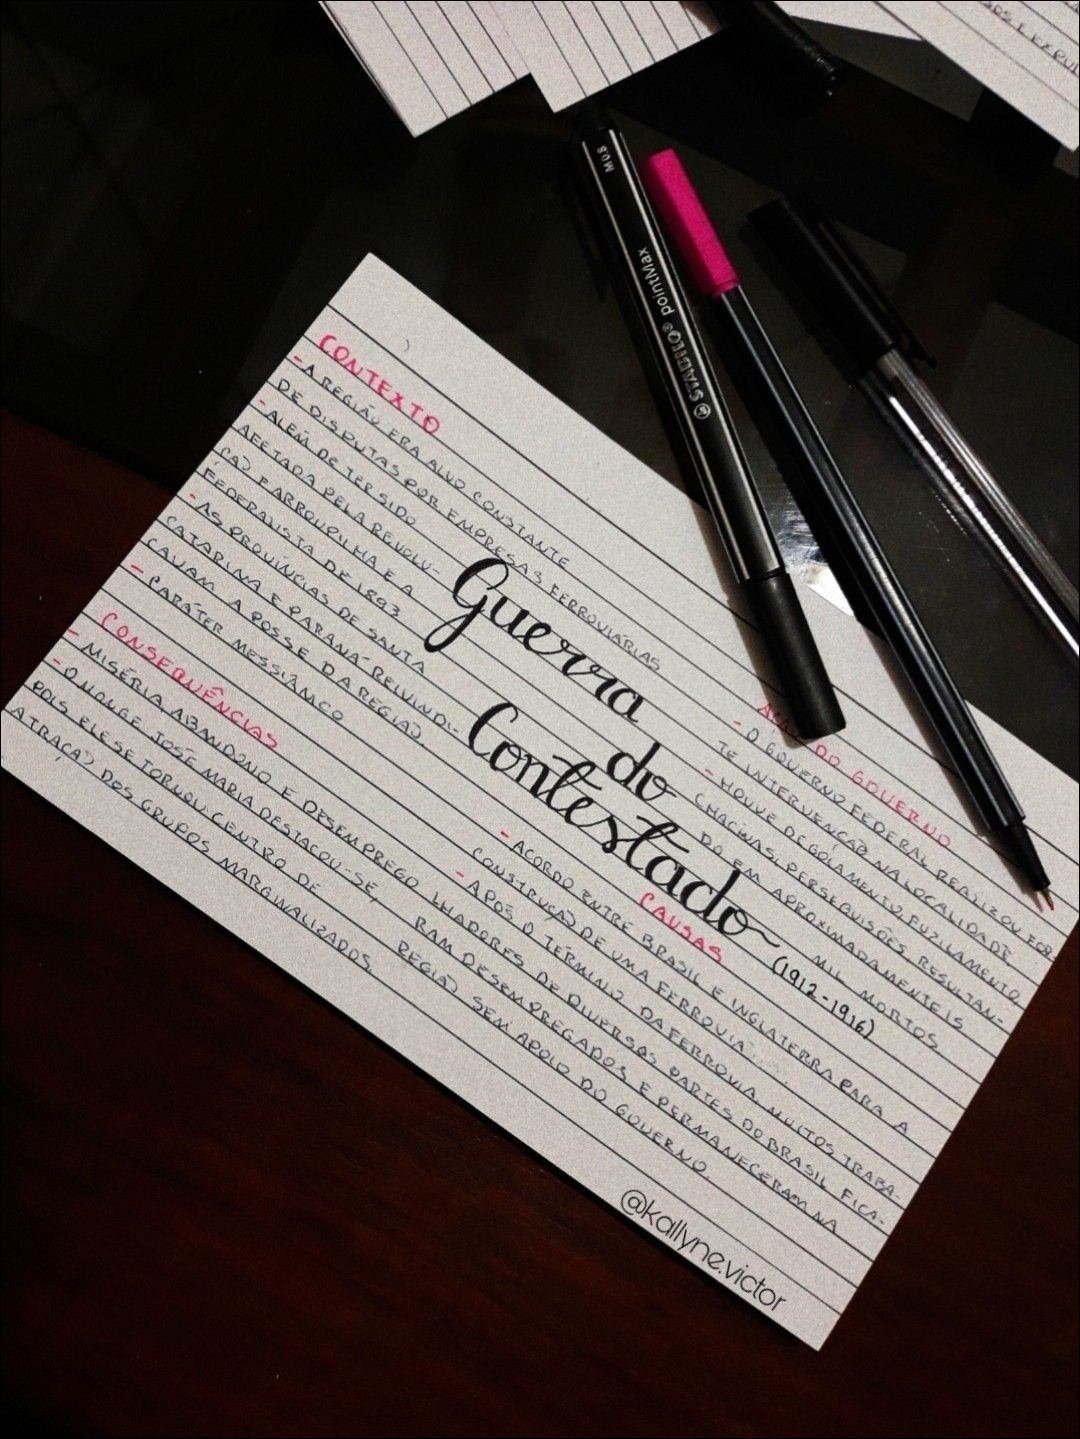 SOS E EXPUL
M 0.8
STABILO® pointMax
CONTEXTO
- A REGIÃO ERA ALVO CONSTANTE
DE DISPUTAS POR EMPRESAS FERROVIÁRIAS
- ALÉM DE TER SIDO
AFETADA PELA REVOLU-
ÇÃO FARROUPILHA E A
FEDERALISTA DE 1893
- AS PROVÍNCIAS DE SANTA
CATARINA E PARANÁ REIVINDI-
CAVAM A POSSE DA REGIÃO.
- CARÁTER MESSIÂNICO
CONSEQUÊNCIAS
- MISÉRIA ABANDONO E DESEMPREGO
- O MONGE JOSÉ MARIA DESTACOU-SE,
POIS ELE SE TORNOU CENTRO DE
ATRAÇÃO DOS GRUPOS MARGINALIZADOS.
Guerra
do
Contestado
(1912-1916)
DO GOVERNO
- O GOVERNO FEDERAL REALIZOU FOR
TE INTERVENÇÃO NA LOCALIDADE
- HOUVE DEGOLAMENTO, FUZILAMENTO
CHACINAS, PERSEGUISÕES, RESULTAN-
DO EM APROXIMADAMENTE 15
MIL MORTOS
CAUSAS
- ACORDO ENTRE BRASIL E INGLATERRA PARA A
CONSTRUÇÃO DE UMA FERROVIA
- APÓS O TÉRMINO DA FERROVIA, MUITOS TRABA-
LHADORES DE DIVERSAS PARTES DO BRASIL FICA-
RAM DESEMPREGADOS E PERMANECERAM NA
REGIÃO SEM APOIO DO GOVERNO.
@kallyne.victor